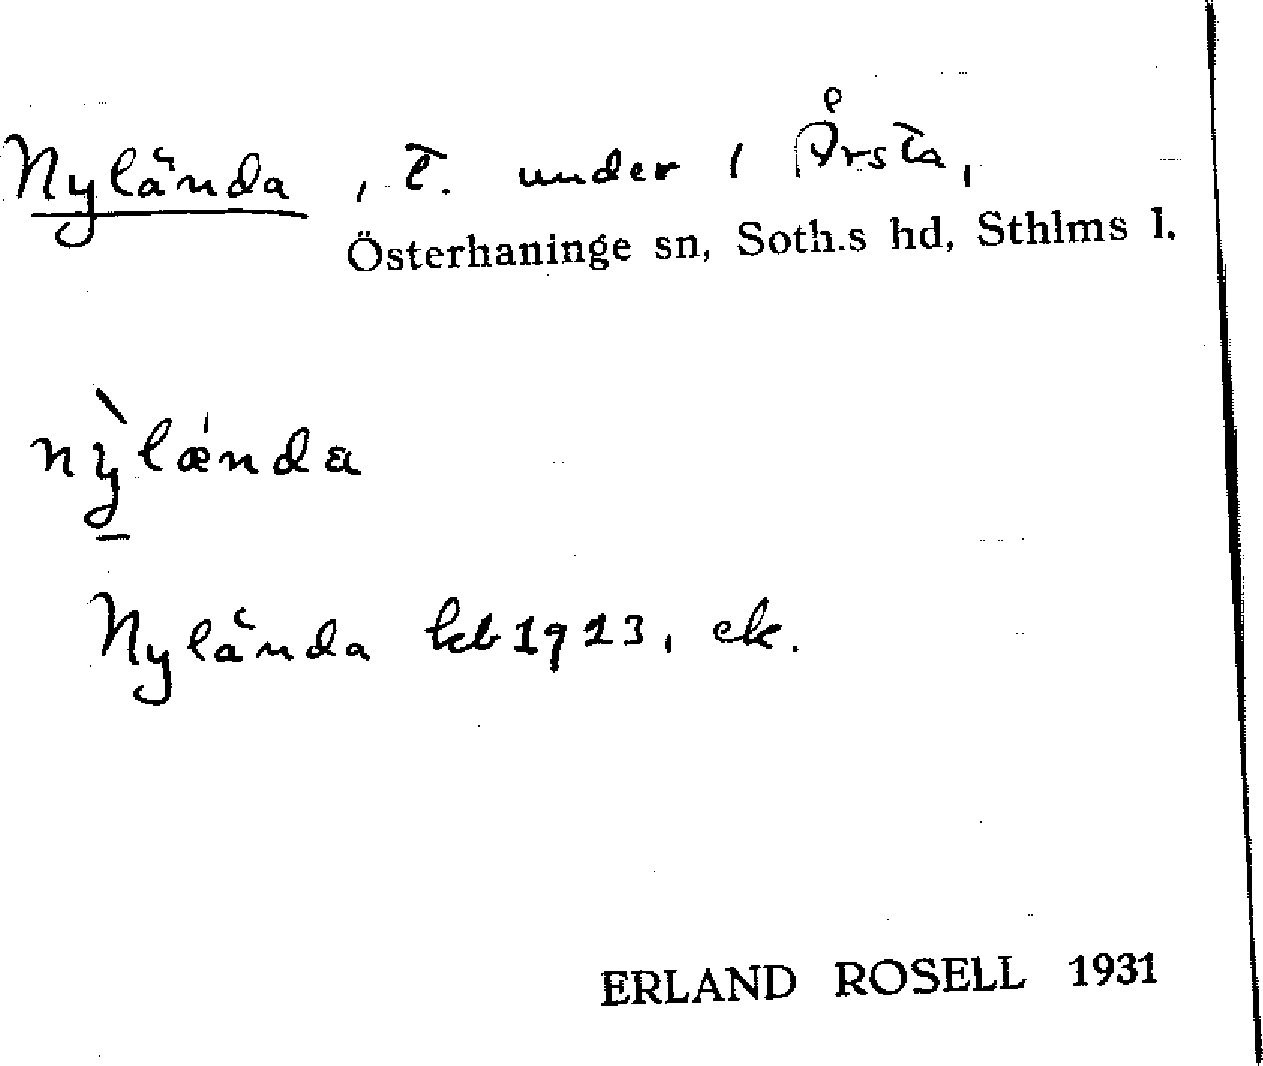 Nylända, t. under 1 Årsta,
Österhaninge sn, Soth.s hd, Sthlms l.
nỳlǽnda
Nylända kb 1923, ek.
ERLAND ROSELL 1931